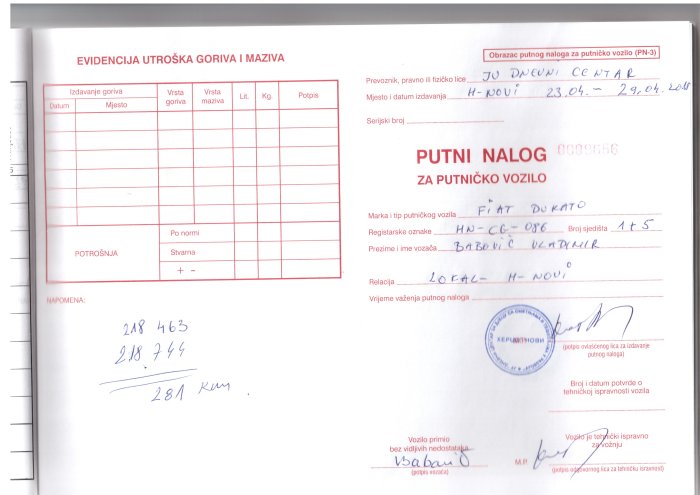 EVIDENCIJA UTROŠKA GORIVA I MAZIVA
Izdavanje goriva
Datum
Mjesto
Vrsta goriva
Vrsta maziva
Lit.
Kg.
Potpis
POTROŠNJA
Po normi
Stvarna
+ -
NAPOMENA:
218 463
218.744
281 Km
Obrazac putnog naloga za putničko vozilo (PN-3)
Prevoznik, pravno ili fizičko lice JU DNEVNI CENTAR
Mjesto i datum izdavanja H-NOVI 23.04. - 29.04.2018
Serijski broj
PUTNI NALOG
ZA PUTNIČKO VOZILO
Marka i tip putničkog vozila FIAT DUKATO
Registarske oznake HN-CG-086 Broj sjedišta 1+5
Prezime i ime vozača BABOVIĆ VLADIMIR
Relacija LOKAL- H-NOVI
Vrijeme važenja putnog naloga
ХЕРЦЕГ НОВИ
(potpis ovlašćenog lica za izdavanje
putnog naloga)
Broj i datum potvrde o
tehničkoj ispravnosti vozila
Vozilo primio
bez vidljivih nedostataka
(potpis vozača)
M.P.
Vozilo je tehnički ispravno
za vožnju
(potpis odgovornog lica za tehničku ispravnost)